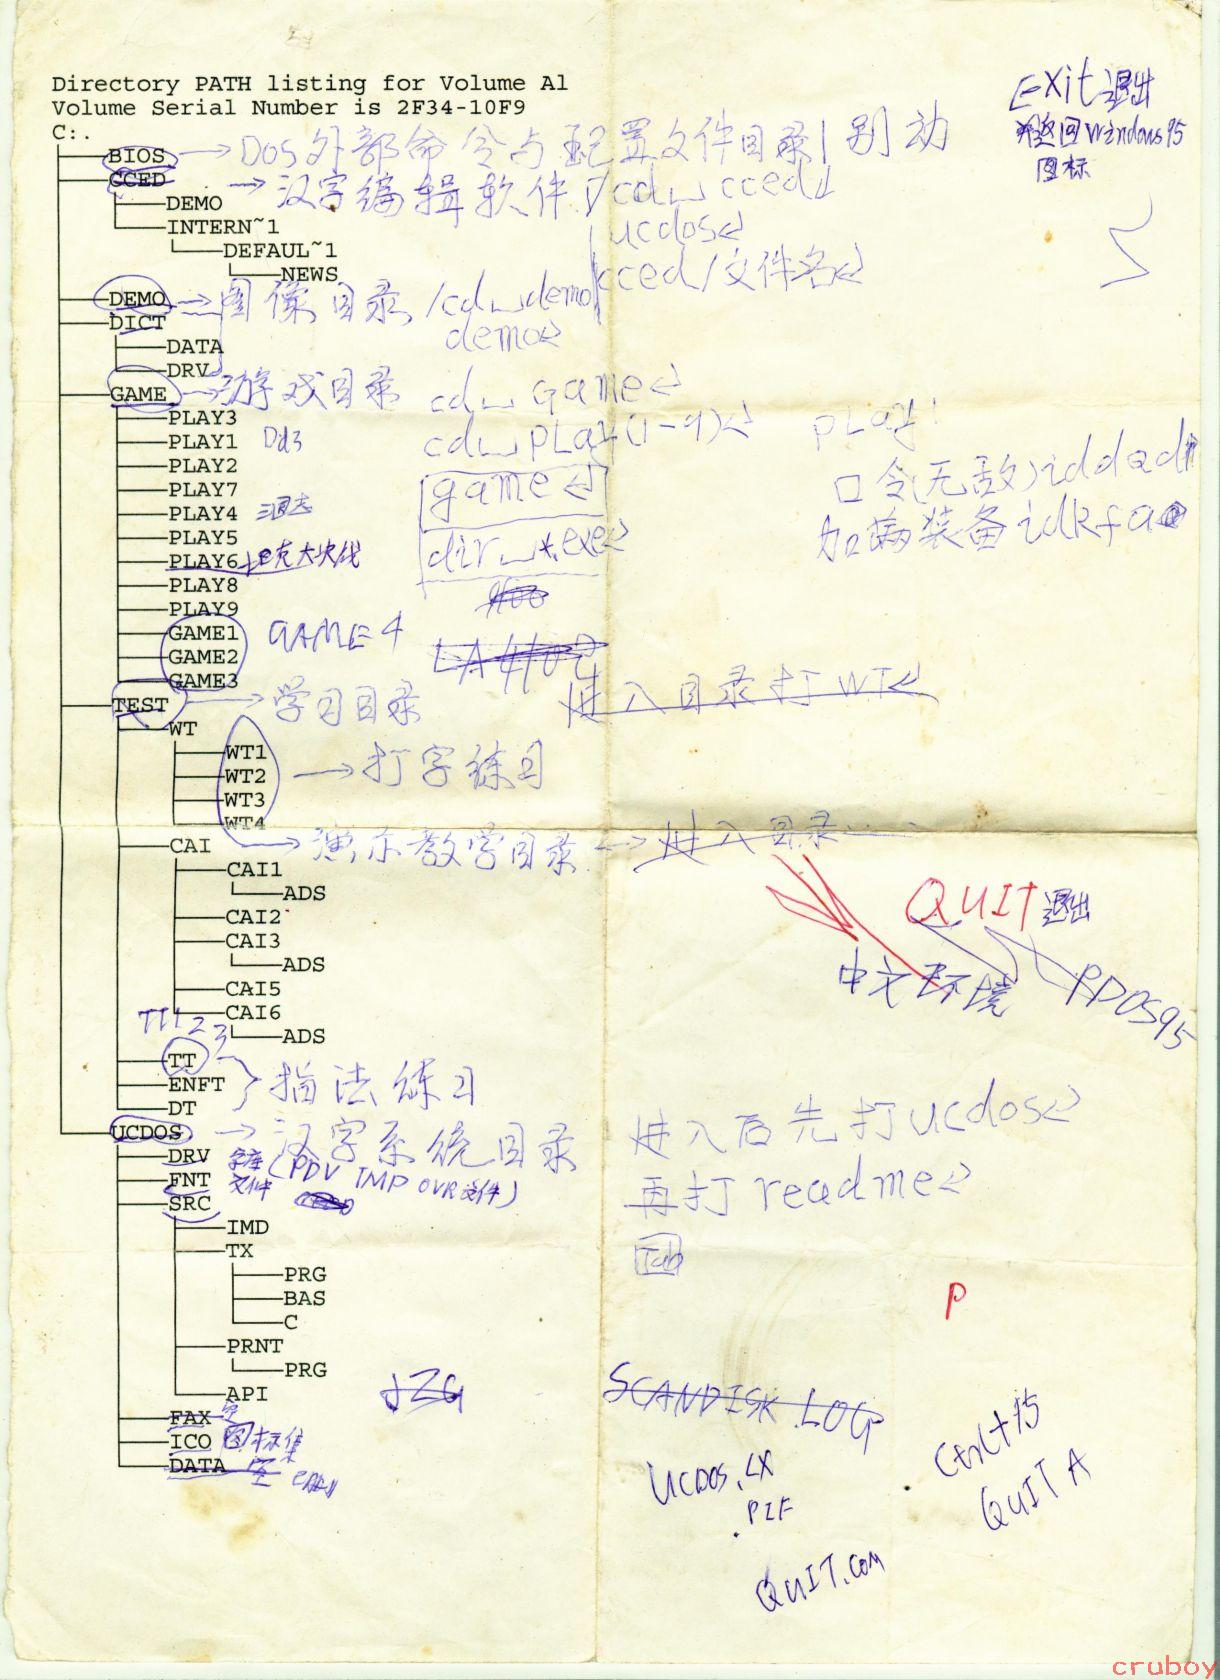 Directory PATH listing for Volume A1
Volume Serial Number is 2F34-10F9
C:.
Exit 退出
返回Windows95
图标
BIOS → Dos外部命令与配置文件目录 别动
CCED → 汉字编辑软件 cd␣cced↵
DEMO
ucdos↵
INTERN~1
DEFAUL~1
cced/文件名↵
NEWS
DEMO → 图像目录 /cd␣demo
DICT
demo↵
DATA
DRV
GAME → 游戏目录 cd␣Game↵
PLAY3
cd␣PLAY(1-9)↵ PLAY1
PLAY1 Dd3
PLAY2
口令(无敌)iddqd
PLAY7
game↵
PLAY4 三国志
加满装备idkfa
PLAY5
dir␣*.exe↵
PLAY6
PLAY8
PLAY9
GAME1 GAME4
GAME2
GAME3
进入目录打WT↵
TEST → 学习目录
WT
WT1
WT2 → 打字练习
WT3
WT4
CAI → 演示教学目录 → 进入目录
CAI1
ADS
CAI2
QUIT 退出
CAI3
ADS
中文环境
CAI5
PDOS95
CAI6
TT1 2 3
ADS
TT
ENFT 指法练习
DT
UCDOS → 汉字系统目录
进入后先打ucdos↵
DRV 字库
FNT 文件 (PDV IMP OVR文件)
再打readme↵
SRC
IMD
TX
Tab
PRG
P
BAS
C
PRNT
PRG
API JZG
SCANDISK.LOG
FAX 空
ICO 图标集
DATA 空
Ctrl+F5
UCDOS.LX
.PIF
QUIT A
QUIT.COM
cruboy